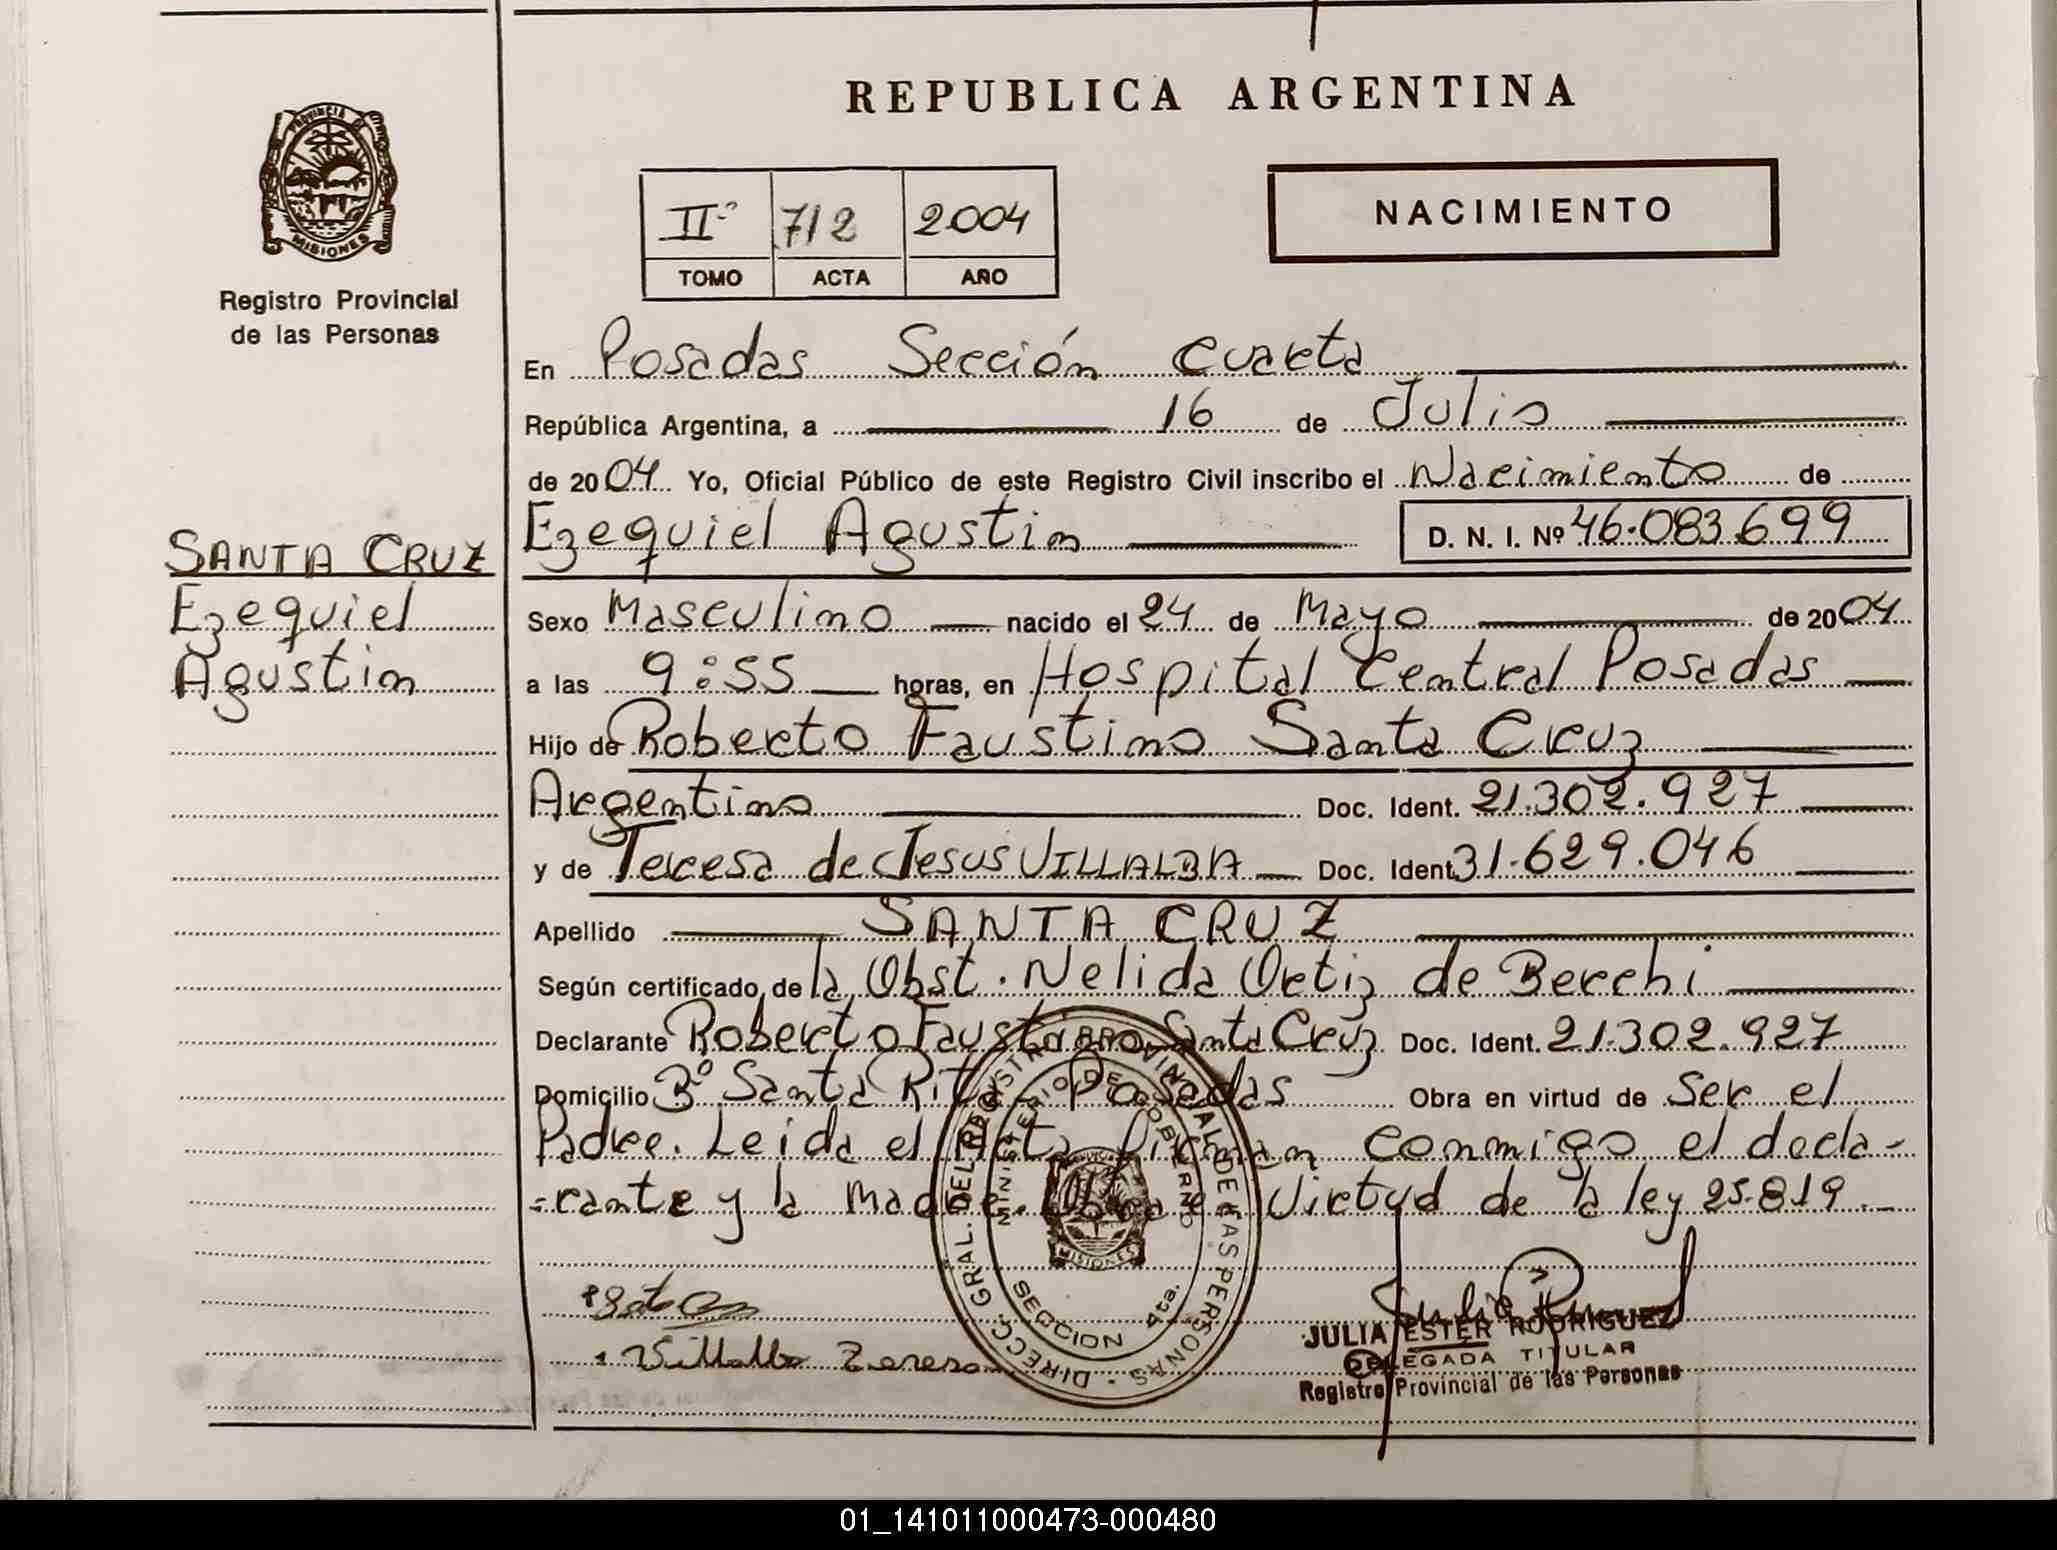 REPUBLICA ARGENTINA
PROVINCIA DE
MISIONES
Registro Provincial
de las Personas
IIº 712 2004
TOMO ACTA AÑO
NACIMIENTO
En Posadas Sección Cuarta
República Argentina, a 16 de Julio
de 2004 Yo, Oficial Público de este Registro Civil inscribo el Nacimiento de
Ezequiel Agustin D. N. I. Nº 46.083.699
SANTA CRUZ
Ezequiel
Agustin
Sexo Masculino nacido el 24 de Mayo de 2004
a las 9:55 horas, en Hospital Central Posadas
Hijo de Roberto Faustino Santa Cruz
Argentino Doc. Ident. 21.302.927
y de Teresa de Jesus VILLALBA Doc. Ident 31.629.046
Apellido SANTA CRUZ
Según certificado de la Obst. Nelida Ortiz de Berchi
Declarante Roberto Faustino Santa Cruz Doc. Ident. 21.302.927
Domicilio Bº Santa Rita Posadas Obra en virtud de Ser el
Padre. Leida el Acta firman conmigo el decla-
-rante y la madre. Obra en Virtud de la ley 25.819.-
DIRECC. GRAL. DEL REGISTRO PROVINCIAL DE LAS PERSONAS
MINISTERIO DE GOBIERNO
MISIONES
SECCION 4ta.
Villalba Teresa
JULIA ESTER RODRIGUEZ
DELEGADA TITULAR
Registro Provincial de las Personas
01_141011000473-000480